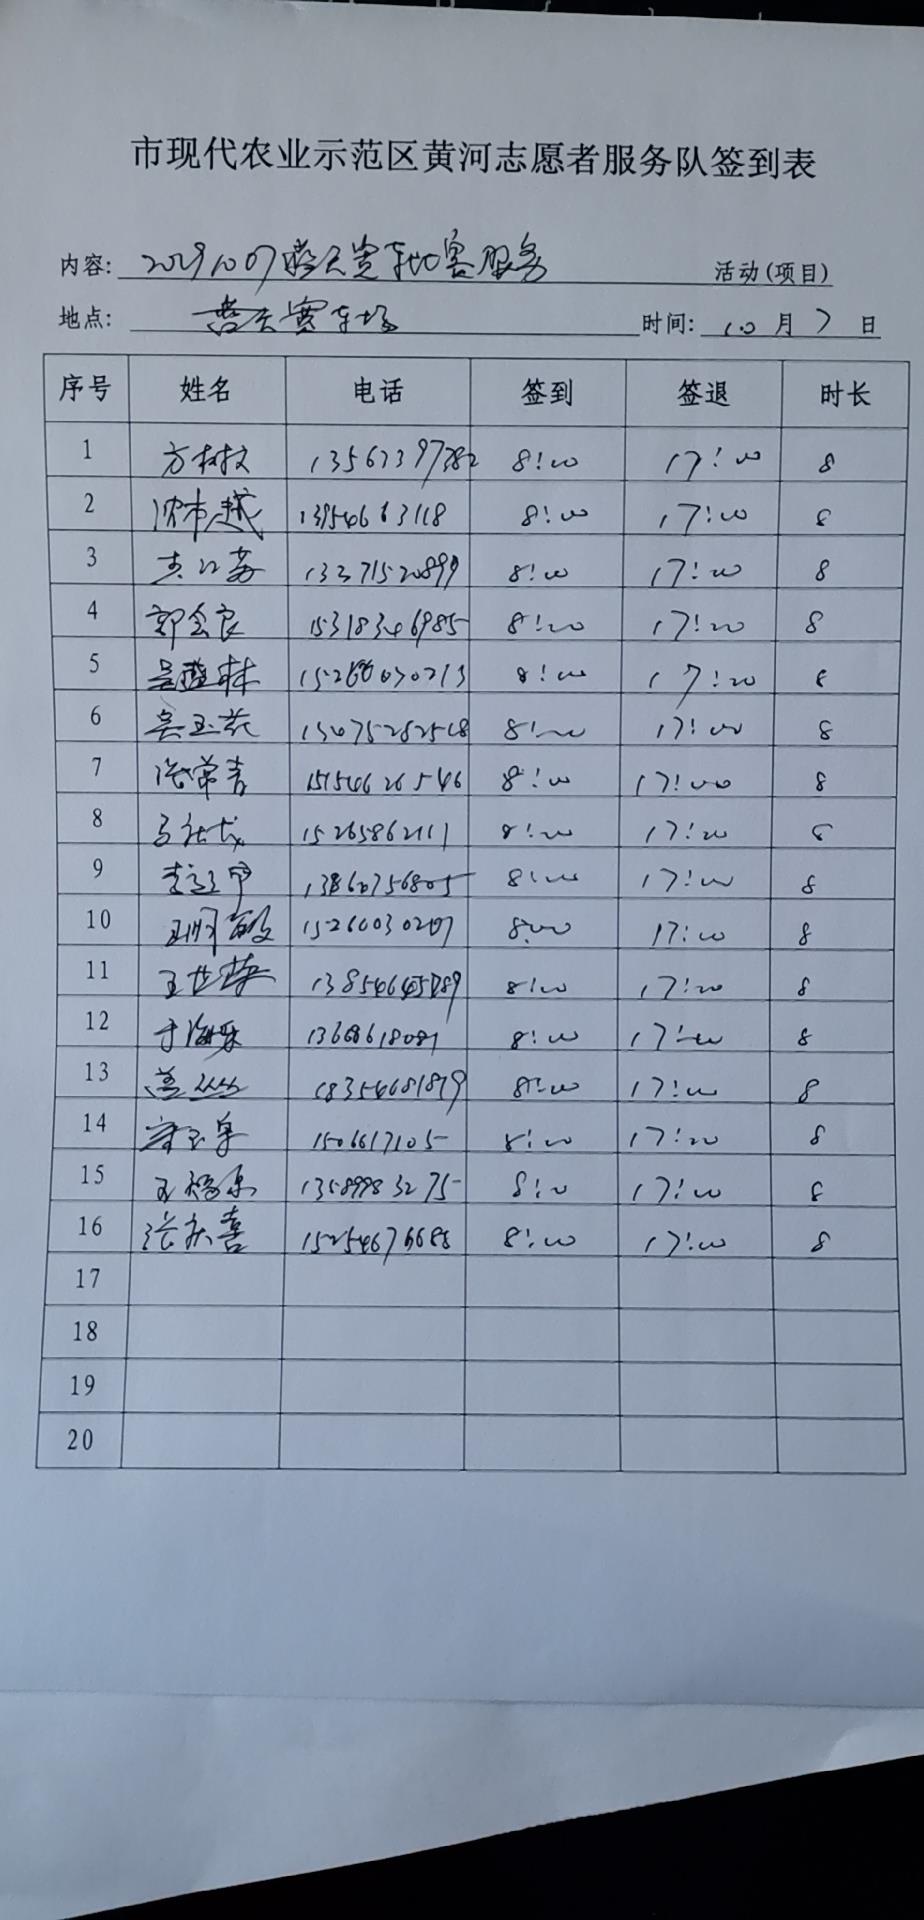 市现代农业示范区黄河志愿者服务队签到表
内容: 20191007 赛车 客服务 活动(项目)
地点: 赛车场 时间: 10 月 7 日
序号 姓名 电话 签到 签退 时长
1 方树文 13562397282 8:00 17:00 8
2 越 13954663118 8:00 17:00 8
3 13371520899 8:00 17:00 8
4 郭会良 15318346985 8:00 17:00 8
5 吴 林 8:00 17:00 8
6 吴玉花 8:00 17:00 8
7 张常青 15154626546 8:00 17:00 8
8 15265862111 8:00 17:00 8
9 李 13860756805 8:00 17:00 8
10 敏 15266030207 8:00 17:00 8
11 王世英 8:00 17:00 8
12 于海 8:00 17:00 8
13 丛丛 18354681819 8:00 17:00 8
14 1506617105 8:00 17:00 8
15 王 13589983275 8:00 17:00 8
16 张庆喜 15254676688 8:00 17:00 8
17
18
19
20